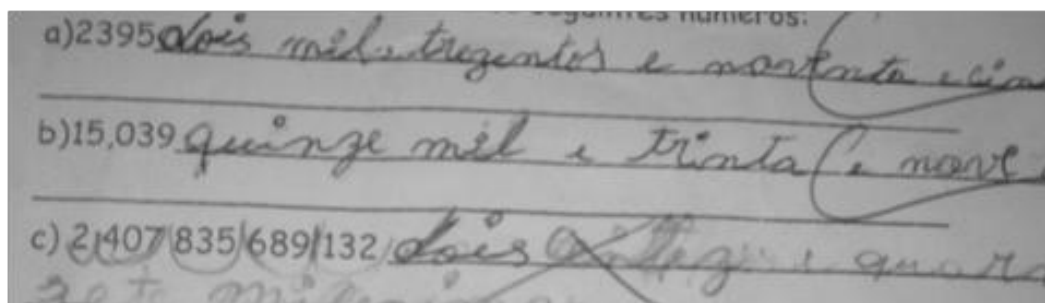 seguintes números:
a)2395 dois mil, trezentos e noventa e cin
b)15,039 quinze mil e trinta e nove
c) 2/407/835/689/132 dois